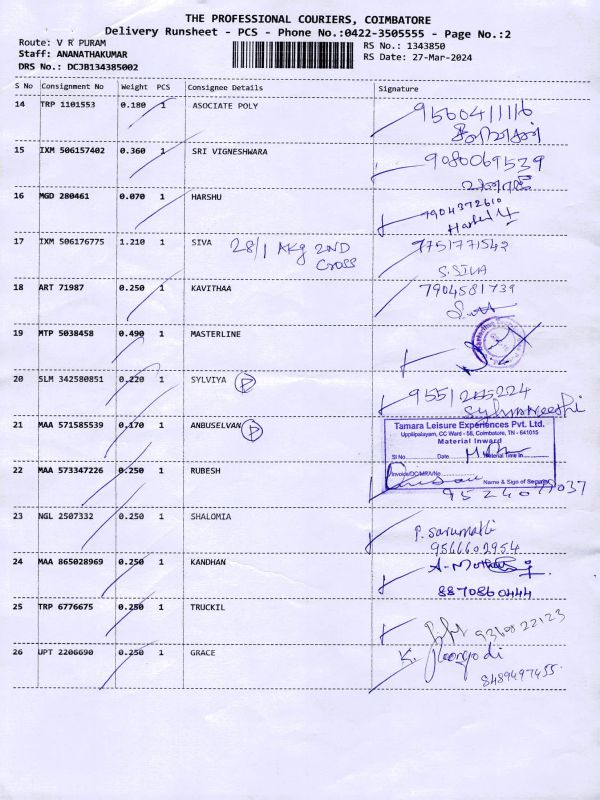 THE PROFESSIONAL COURIERS, COIMBATORE
Delivery Runsheet - PCS - Phone No.:0422-3505555 - Page No.:2
Route: V R PURAM
RS No.: 1343850
Staff: ANANATHAKUMAR
RS Date: 27-Mar-2024
DRS No.: DCJB134385002
S No Consignment No Weight PCS Consignee Details Signature
14 TRP 1101553 0.180 1 ASOCIATE POLY
15 IXM 506157402 0.360 1 SRI VIGNESHWARA 9080069539
16 MGD 280461 0.070 1 HARSHU 7904372610
17 IXM 506176775 1.210 1 SIVA 28/1 AKG 2ND 7751771542
CROSS S.SIVA
18 ART 71987 0.250 1 KAVITHAA 7904581739
19 MTP 5038458 0.490 1 MASTERLINE
20 SLM 342580851 0.220 1 SYLVIYA P
21 MAA 571585539 0.170 1 ANBUSELVAN P
Tamara Leisure Experiences Pvt. Ltd.
Uppilipalayam, CC Ward - 56, Coimbatore, TN - 641015
Material Inward
Sl No Date Material Time In
22 MAA 573347226 0.250 1 RUBESH
Invoice/DC/MRA/No
Name & Sign of Security
23 NGL 2507332 0.250 1 SHALOMIA
9566602954
24 MAA 865028969 0.250 1 KANDHAN
8870860444
25 TRP 6776675 0.250 1 TRUCKIL 9360822123
26 UPT 2206690 0.250 1 GRACE K.
8489497455